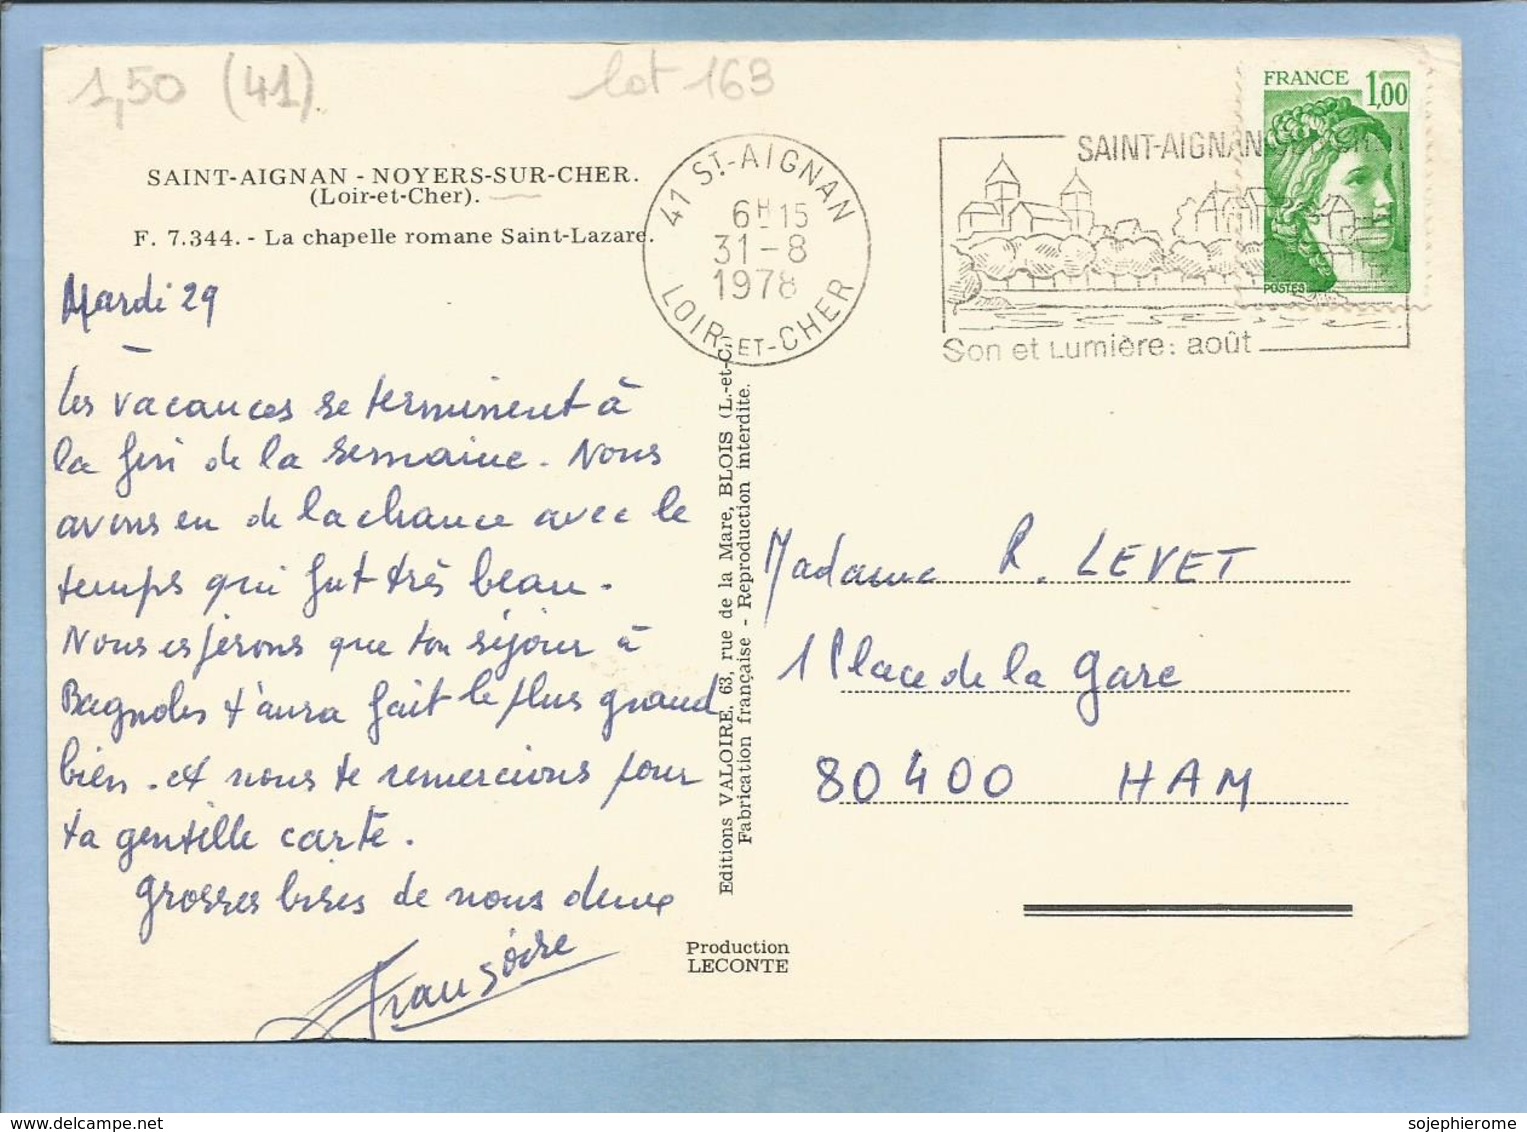 1,50 (41)
lot 163
SAINT-AIGNAN - NOYERS-SUR-CHER.
(Loir-et-Cher).
F. 7.344. - La chapelle romane Saint-Lazare.
41 ST-AIGNAN
6H15
31-8
1978
LOIR-ET-CHER
SAINT-AIGNAN
Son et Lumière : août
FRANCE 1,00
POSTES
Mardi 29
Les vacances se terminent à
la fin de la semaine. Nous
avons eu de la chance avec le
temps qui fut très beau.
Nous espérons que ton séjour à
Bagnoles t'aura fait le plus grand
bien. et nous te remercions pour
ta gentille carte.
grosses bises de nous deux
Françoise
Editions VALOIRE, 63, rue de la Mare, BLOIS (L.-et-C.)
Fabrication française - Reproduction interdite.
Production
LECONTE
Madame R. LEVET
1 Place de la Gare
80400 HAM
delcampe.net
sojephierome